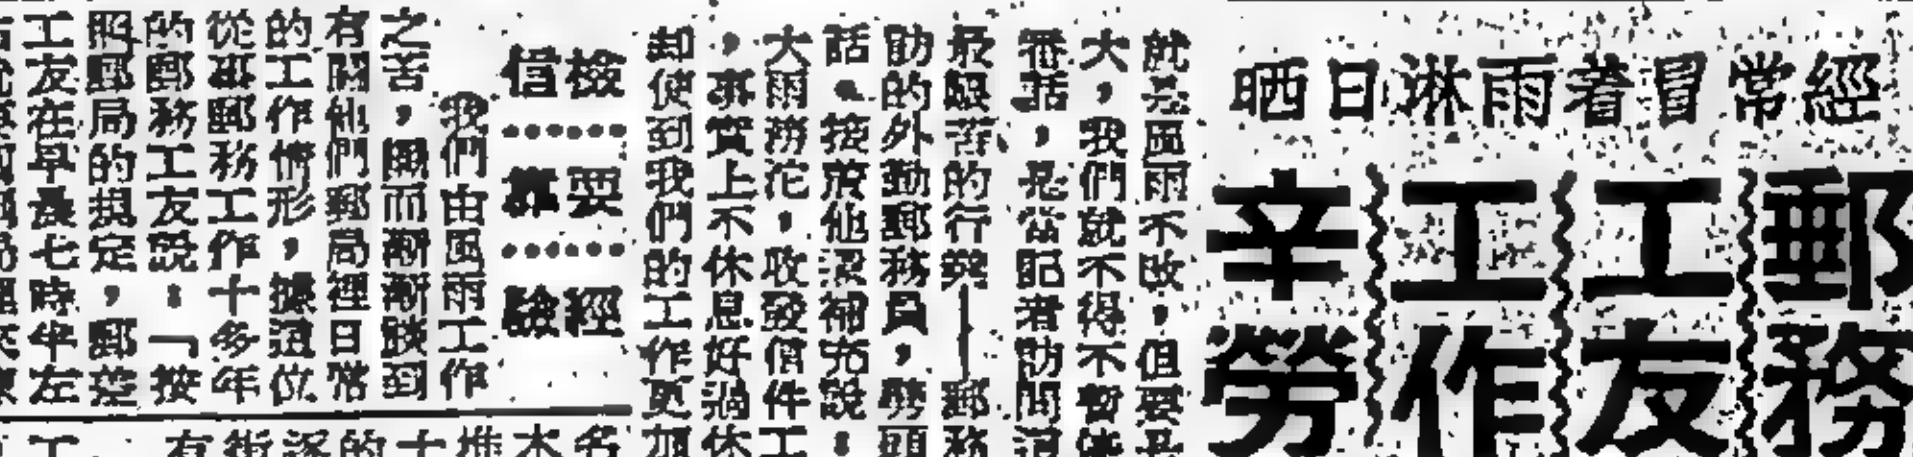 經常冒着雨淋日晒
郵務
工友
工作
辛勞
就是風雨不改，但要是
大，我們就不得不暫
番話，是當記者訪問這
最艱苦的行業——郵務
訪的外勤郵務員，劈頭
話。接着他還補充說：
大雨滂沱，收發信件工
，事實上不休息好過休
卻使到我們的工作更加
檢信……要靠……經驗
我們由風雨工作
之苦，因而漸漸談到
有關他們郵局裡日常
的工作情形，據這位
從事郵務工作十多年
的郵務工友說：「按
照郵局的規定，郵差
工友在早晨七時半左
名
木
堆
十
的
逐
街
有
工